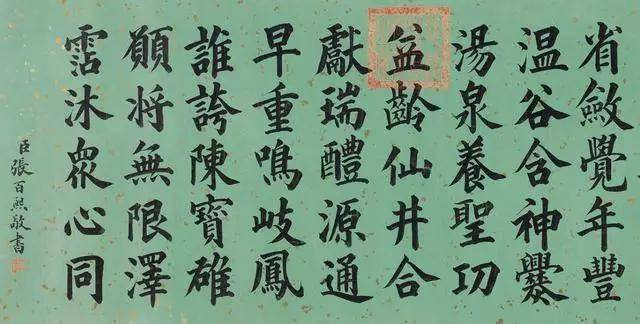 省斂覺年豐
温谷含神爨
湯泉養聖功
益齡仙井合
獻瑞醴源通
早重鳴岐鳳
誰誇陳寶䧺
願将無限澤
霑沐眾心同
臣張百熙敬書